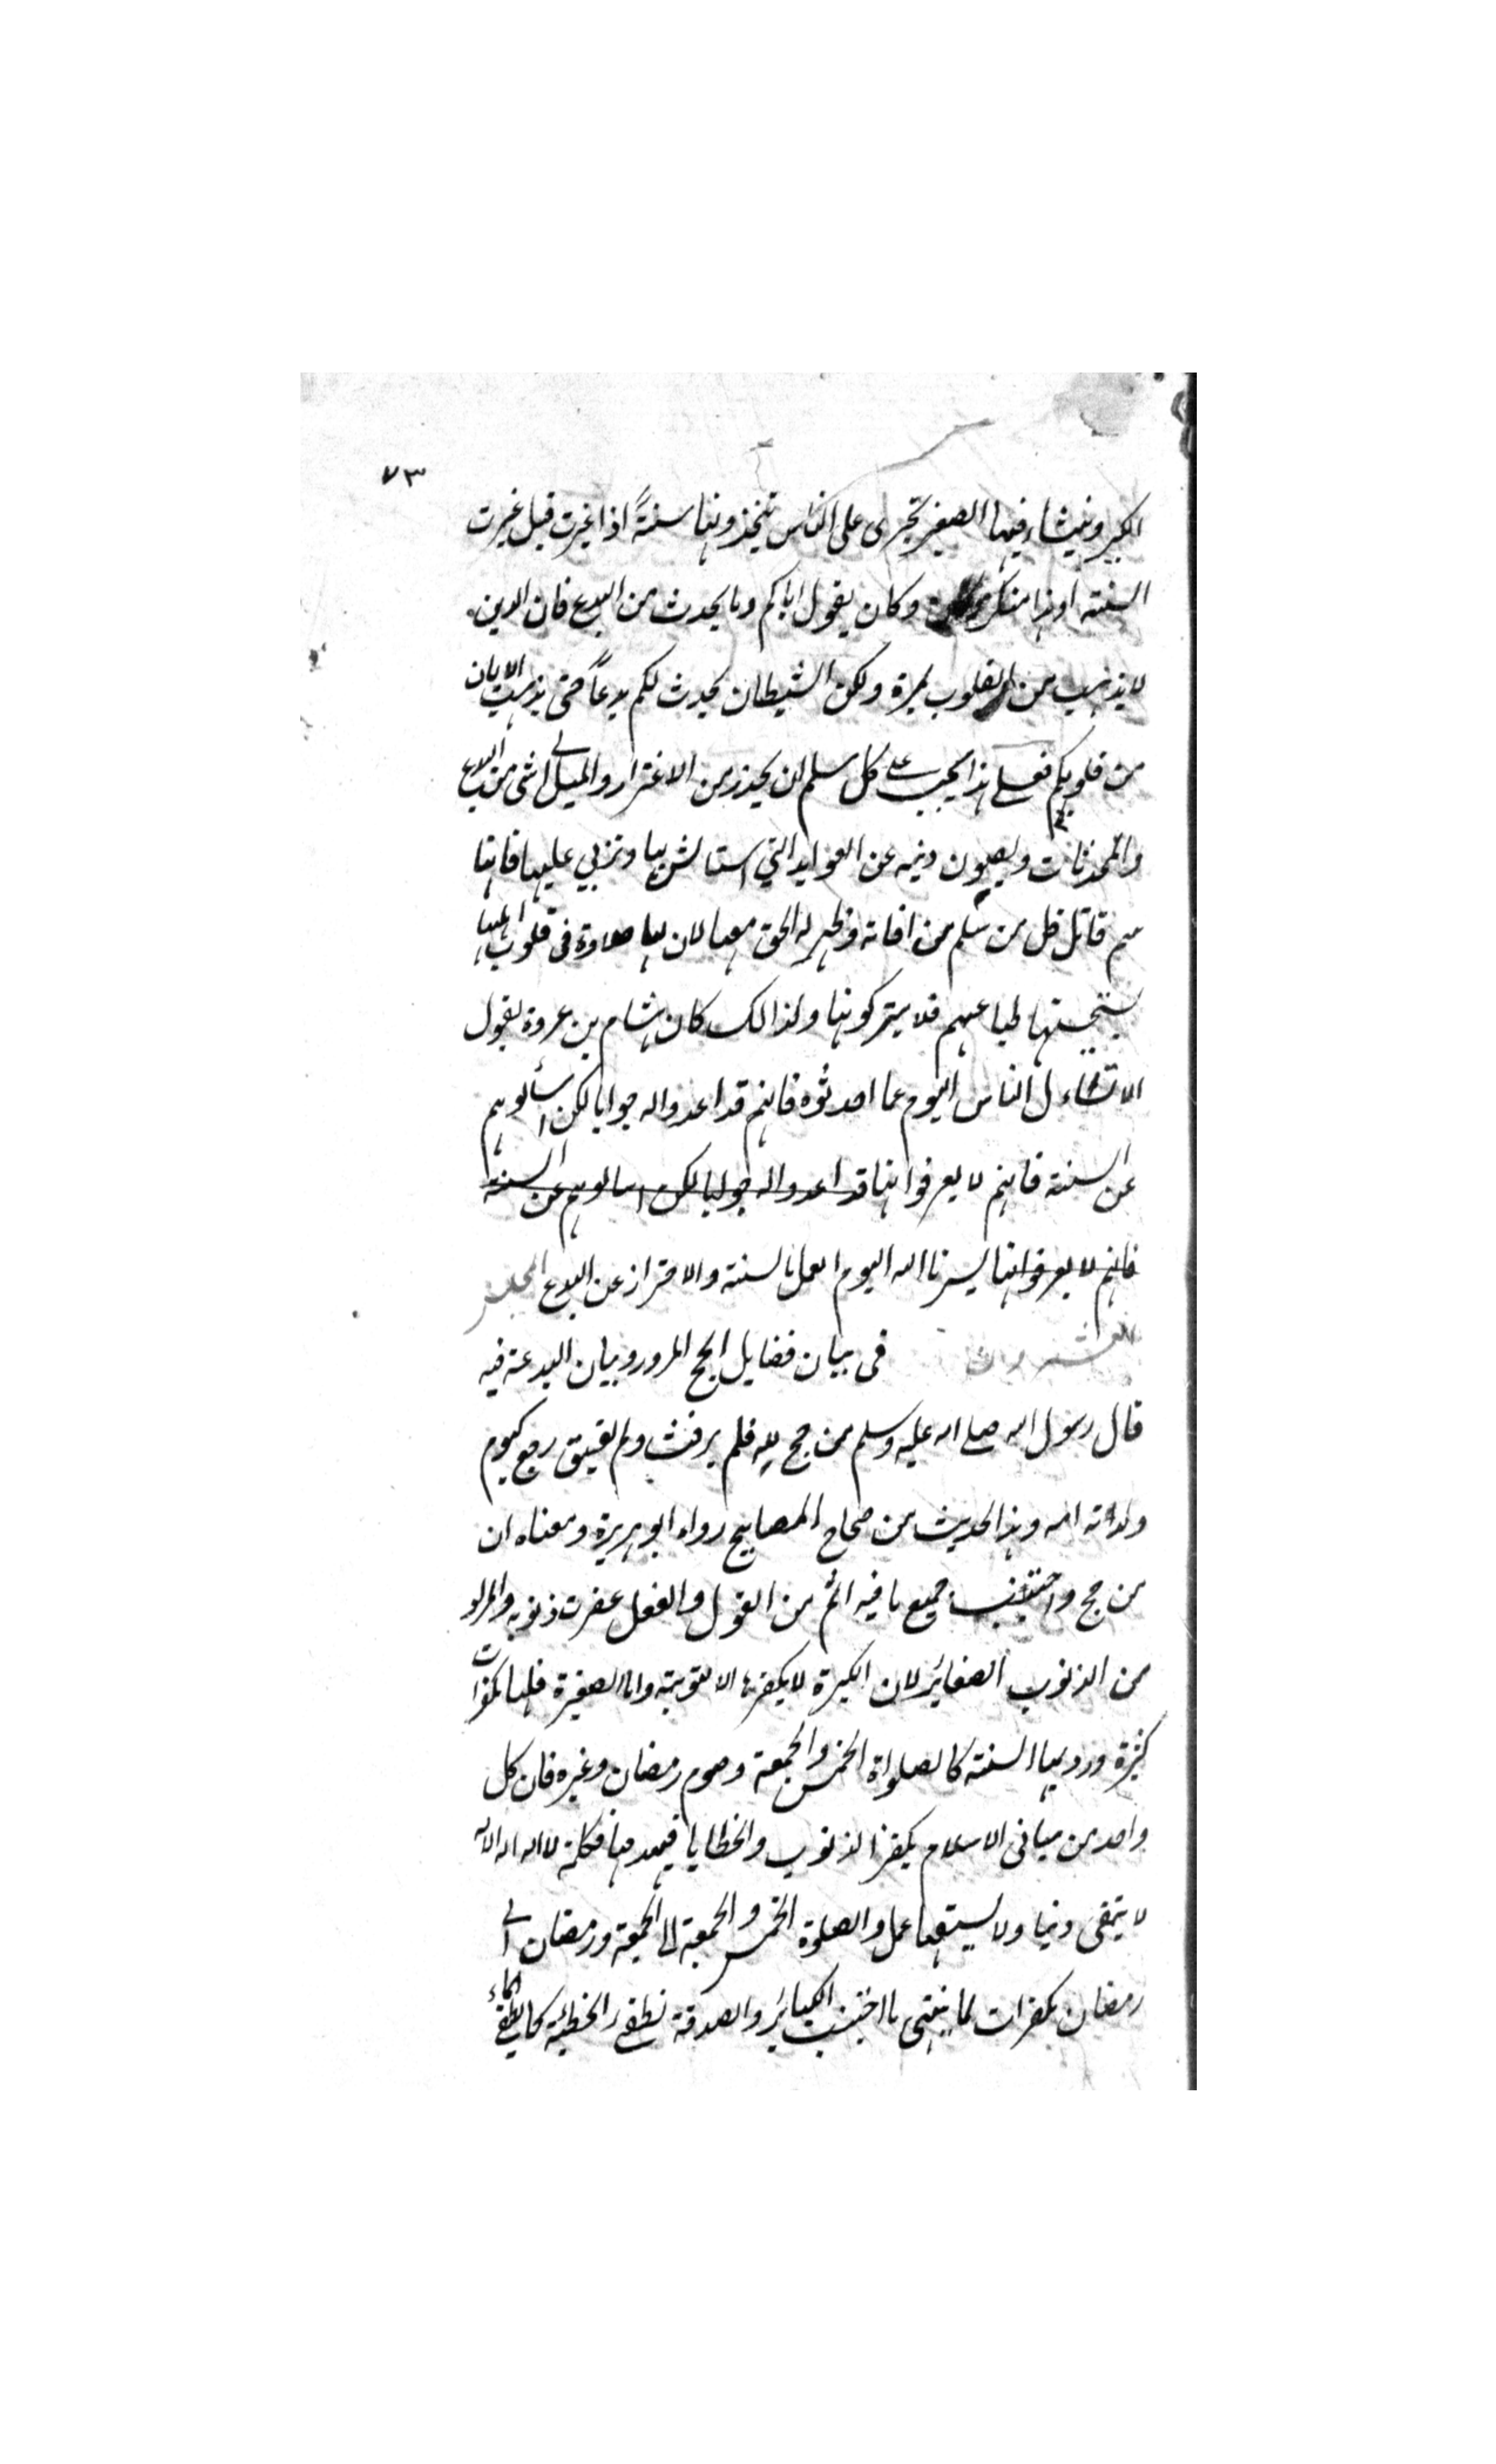 ٧٣
الكبير وينشاء فيها الصغير تجرى على الناس يتخذونها سنةً اذا غيرت قيل غيرت
السنة او هذا منكر وكان يقول اياكم وما يحدث من البدع فان الدين
لا يذهب من القلوب بمرة ولكن الشيطان يحدث لكم بدعاً حتى يذهب الايمان
من قلوبكم فعلى هذا يجب على كل مسلم ان يحذر من الاغترار والميل الى شئ من البدع
والمحدثات ويصون دينه عن العوايد التي استانس بها وتربي عليها فانها
سم قاتل قل من سلم من افاته وظهر له الحق معها لان لها حلاوة فى قلوب اهلها
يستحسنها طباعهم فلا يتركونها ولذالك كان هشام بن عروة يقول
لا تشاءل الناس اليوم عما احدثوه فانهم قد اعدوا له جوابا لكن اسألوهم
عن السنة فانهم لا يعرفوانها قد اعدوا له جوابا لكن اسالوهم عن السنة
فانهم لا يعرفوانها يسرنا الله اليوم العمل بالسنة والاحتراز عن البدع المجلس
العشرون فى بيان فضايل الحج المرور وبيان البدعة فيه
قال رسول الله صلى الله عليه وسلم من حج لله فلم يرفث ولم يفسق رجع كيوم
ولدته امه وهذا الحديث من صحاح المصابيح رواه ابو هريرة ومعناه ان
من حج واجتنب جميع ما فيه اثم من القول والفعل غفرت ذنوبه والمراد
من الذنوب الصغائر لان الكبيرة لا يكفرها الا التوبة واما الصغيرة فلها مكفرات
كثيرة ورد بها السنة كالصلواة الخمس والجمعة وصوم رمضان وغيره فان كل
واحد من مبانى الاسلام يكفر الذنوب والخطايا فيهدمها فكلمة لا اله الا الله
لا تبقى ذنبا ولا يسبقها عمل والصلوة الخمس والجمعة الى الجمعة ورمضان الى
رمضان مكفرات لما بينهى ما اجتنب الكبائر والصدقة تطفى الخطيئة كما يطفى الماء